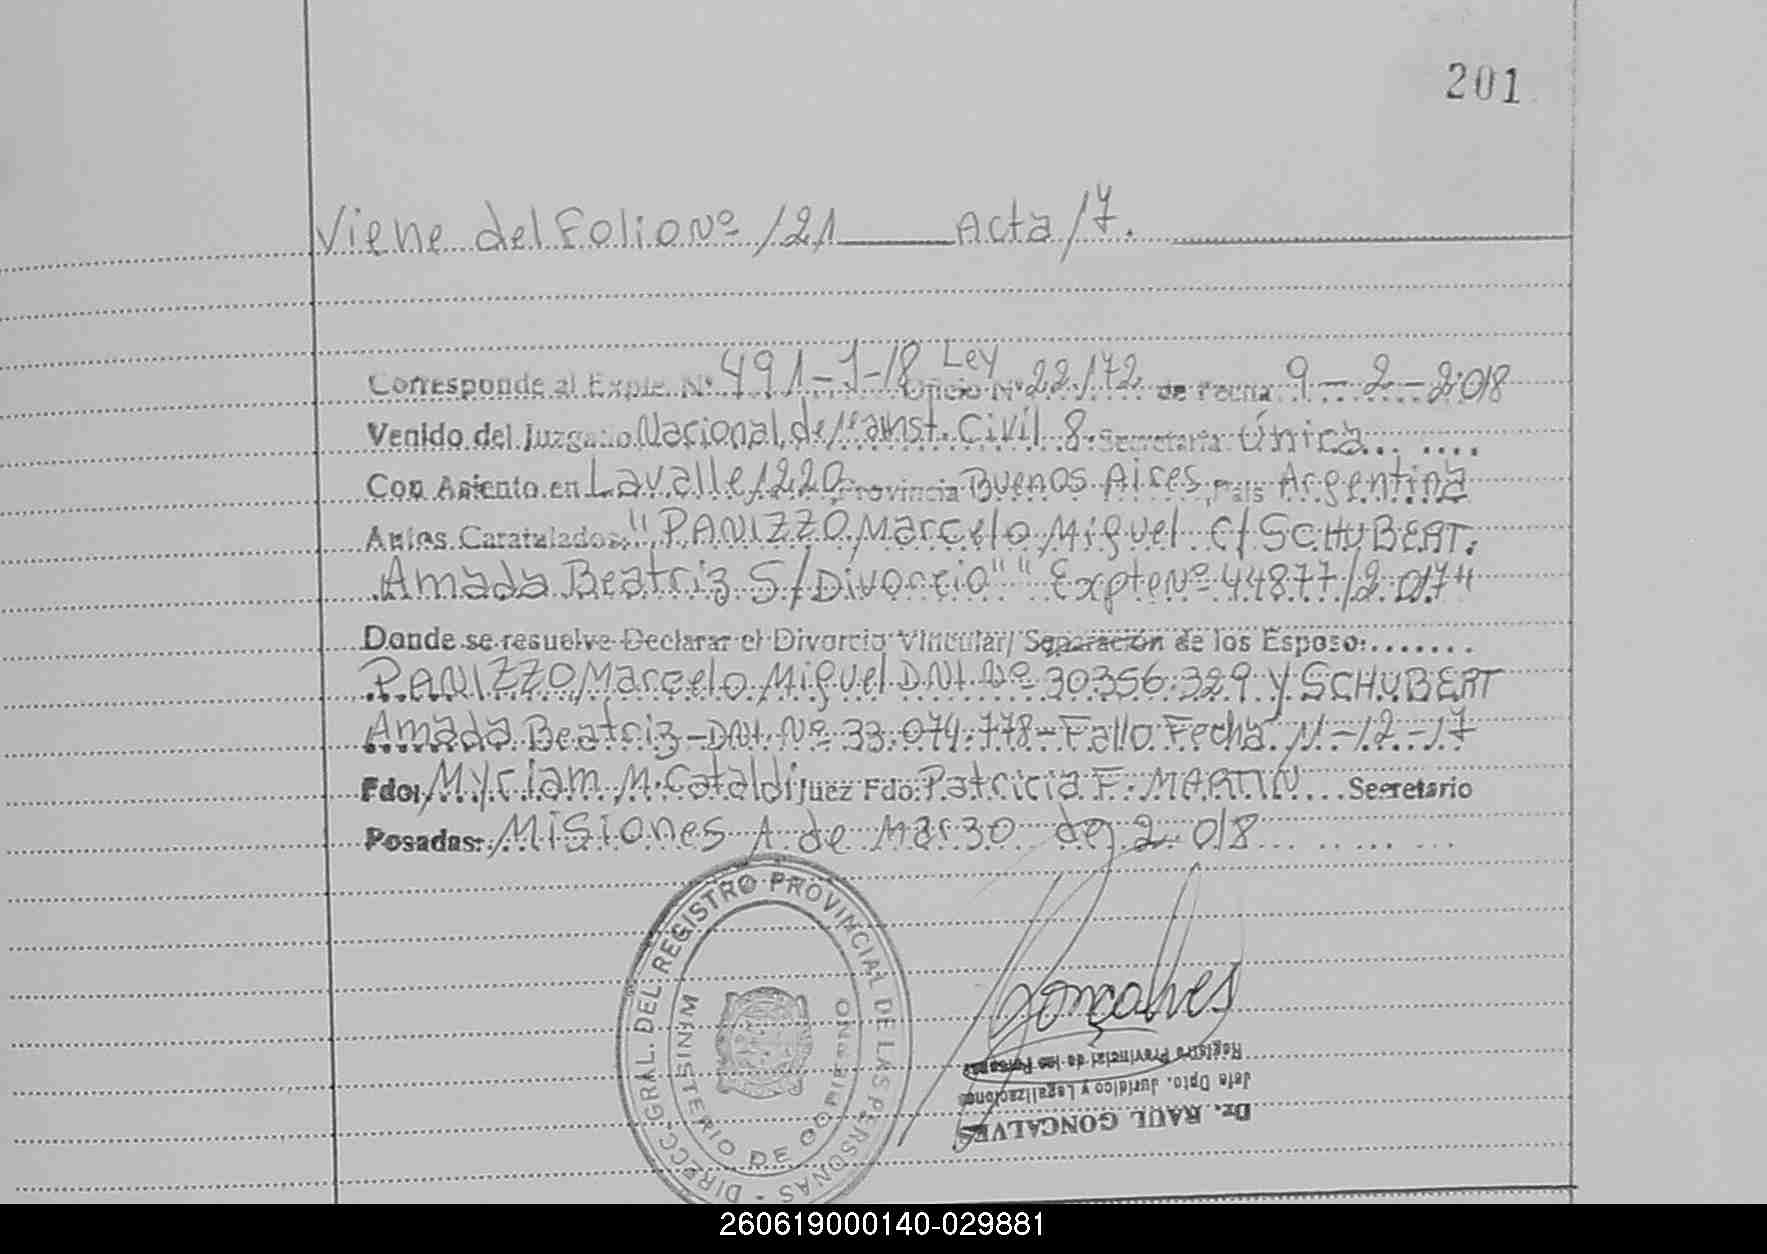 201
Viene del Folio Nº 121 Acta 17.
Corresponde al Expte. Nº 491-J-18 Ley Oficio Nº 22.172 de Fecha 9-2-2018
Venido del Juzgado Nacional de 1ª inst. Civil 8. Secretaria Única
Con Asiento en Lavalle 1220 Provincia Buenos Aires País Argentina
Autos Caratulados: "PANIZZO Marcelo Miguel C/ SCHUBERT.
Amada Beatriz S/Divorcio" "Expte Nº 44877/2017"
Donde se resuelve Declarar el Divorcio Vincular/ Separación de los Esposo:
PANIZZO Marcelo Miguel DNI. Nº 30356.329 y SCHUBERT
Amada Beatriz-DNI. Nº 33.074.778-Fallo Fecha 11-12-17
Fdo: Myriam M. Cataldi Juez Fdo: Patricia F. MARTIN Secretario
Posadas: Misiones 1 de Marzo de 2018
DIRECC. GRAL. DEL REGISTRO PROVINCIAL DE LAS PERSONAS
MINISTERIO DE GOBIERNO
Goncalves
Dr. RAUL GONCALVES
Jefe Dpto. Jurídico y Legalizaciones
Registro Provincial de las Personas
260619000140-029881